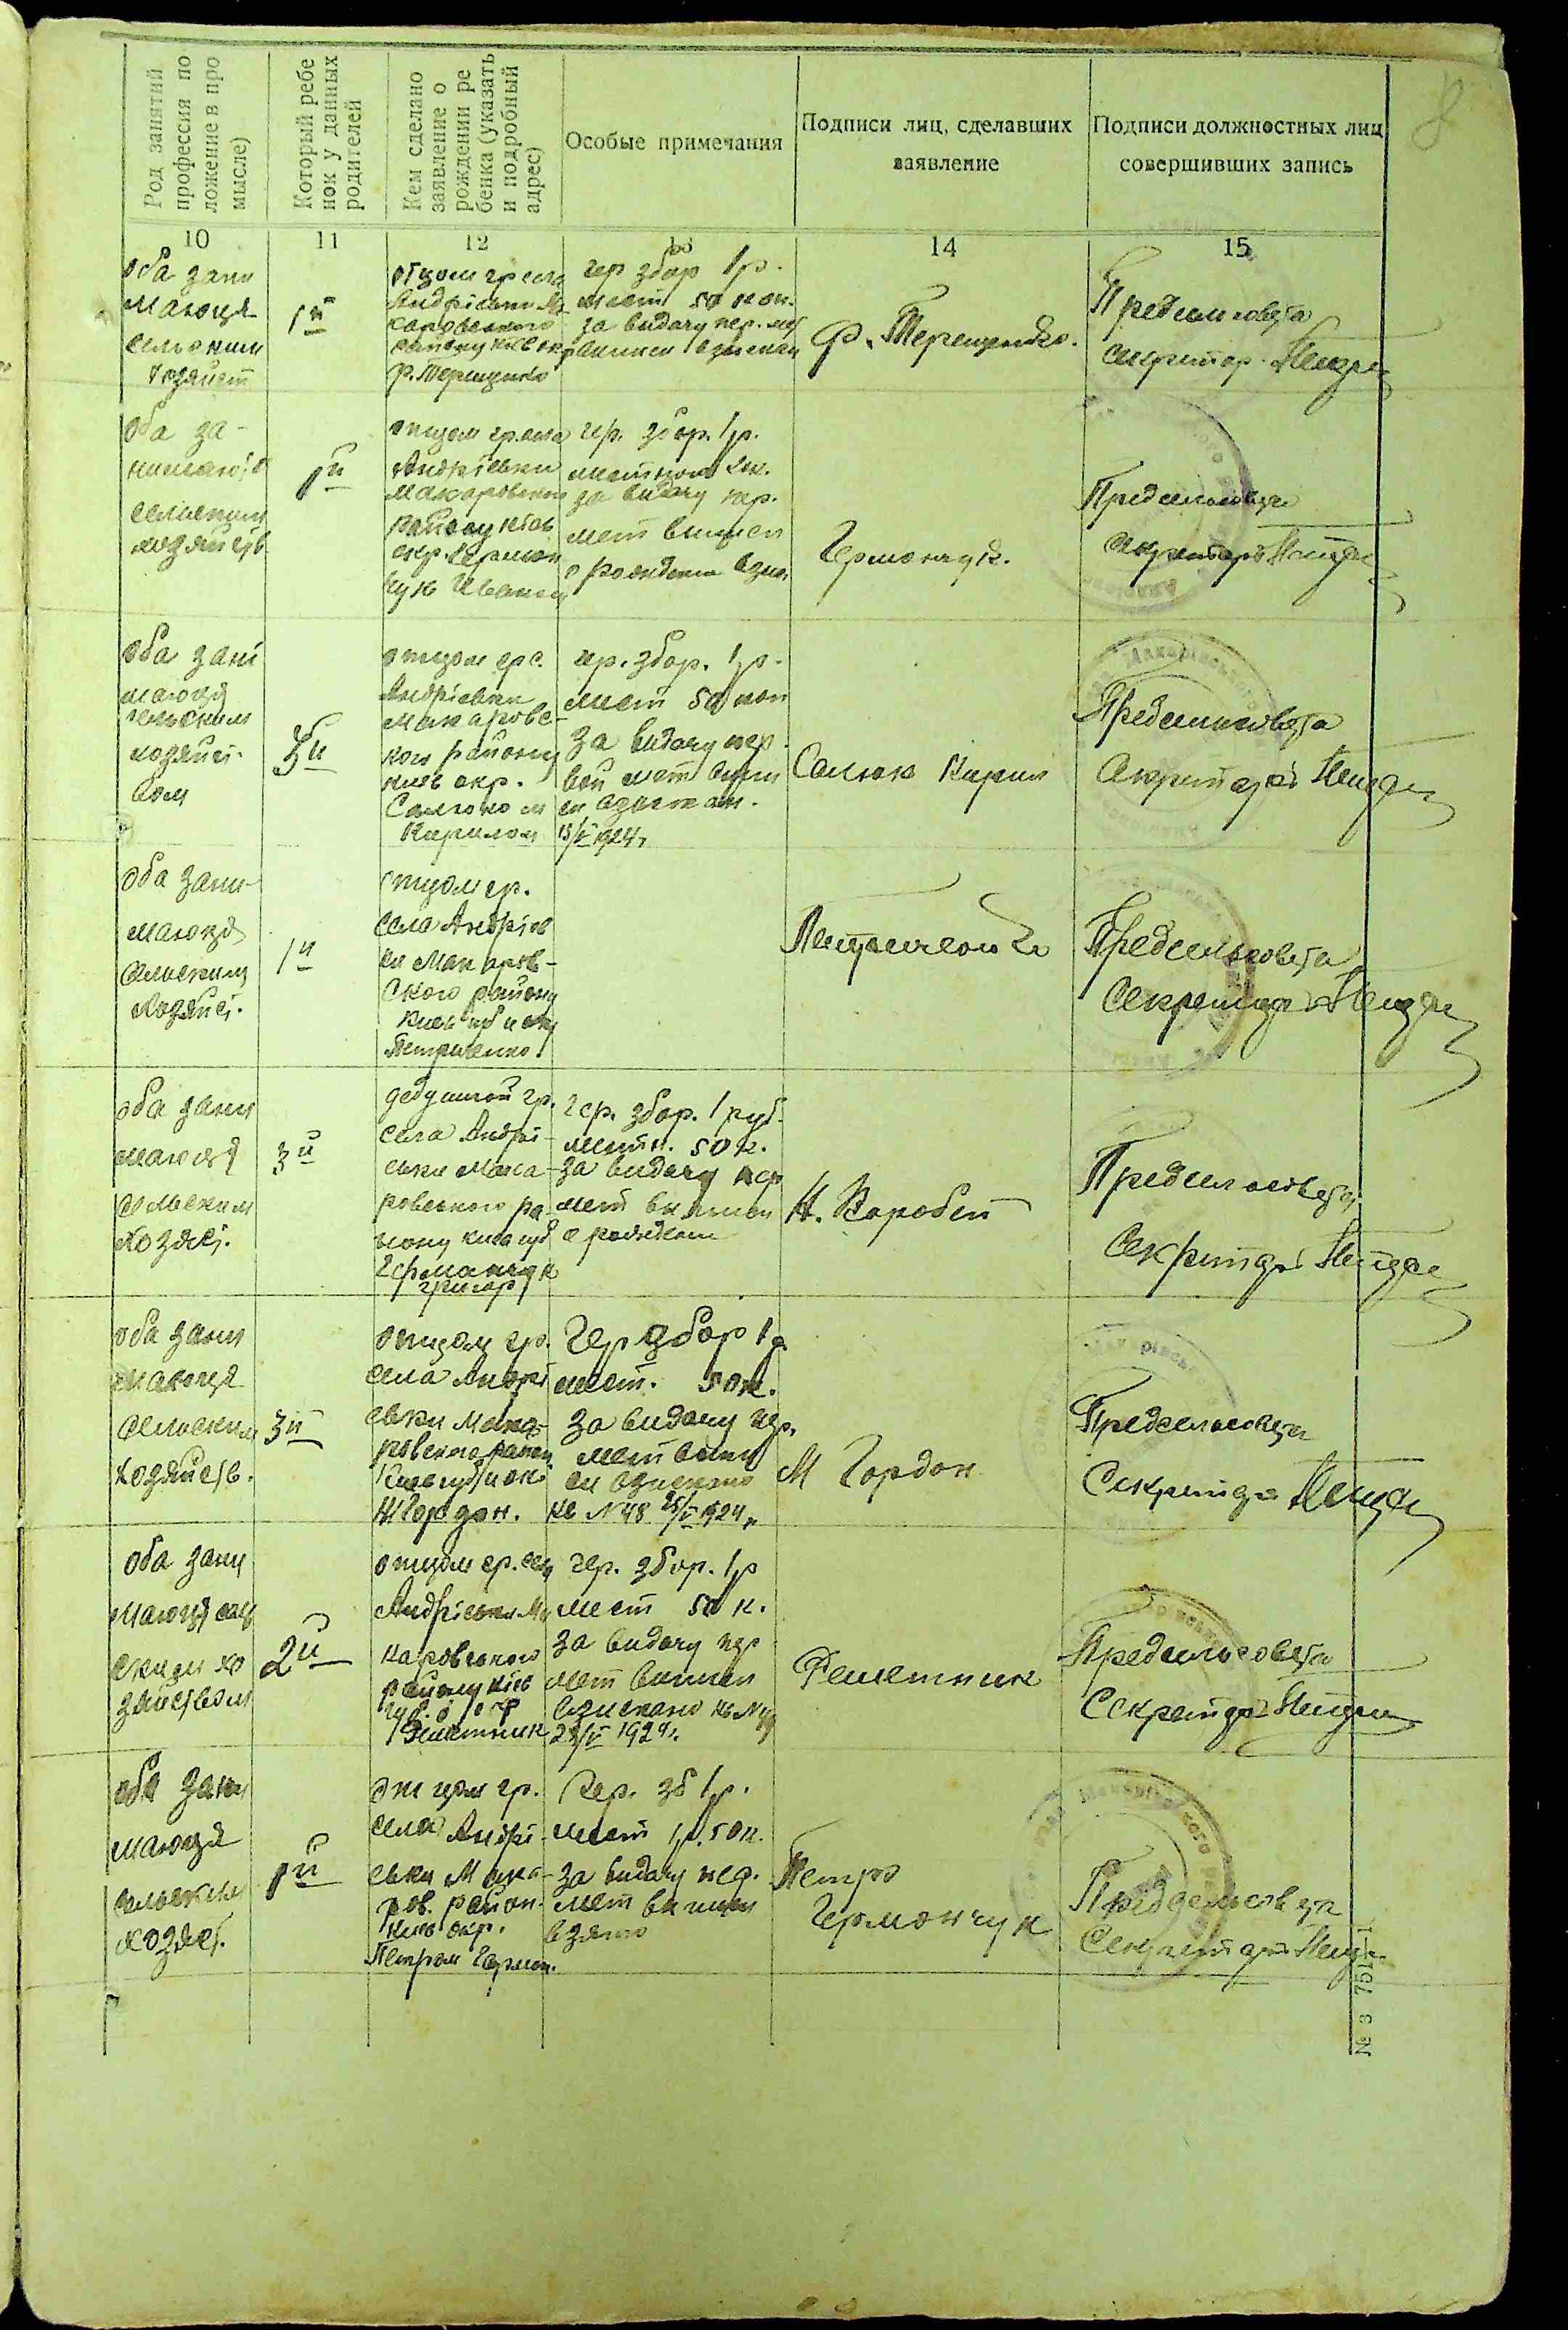 8
Род занятий
профессия по
ложение в про
мысле)
Который ребе
нок у данных
родителей
Кем сделано
заявление о
рождении ре
бенка (указать
и подробный
адрес)
Особые примечания
Подписи лиц, сделавших
заявление
Подписи должностных лиц
совершивших запись
10
11
12
13
14
15
оба зани
маюця
сельским
1й
отцом гр села
Андрієвки Ма
каровського
району
Ф. Терещенко
гер збор 1р.
мест 50 коп.
за видачу пер. мет
Ф. Терещенко.
Предсельсовета
секретар
оба за-
сельским
1й
отцом гр. села
Андрієвки
Макаровского
району Київ
окр. Гермон
чук
гер. збор. 1р.
за видачу пер.
мет виписи
о рождении
Гермончук.
Предсельсовета
Секретарь
оба зани
маюця
сельским
хозяйст-
вом
5й
отцом гр с.
Андрієвки
Макаровс-
кого району
Київ окр.
Салюком
Кирилом
гер. збор. 1р.
мест 50 коп
за видачу пер-
вой мет випи
си взискан.
15/V 1924г
Салюк Кирил
Предсельсовета
Секретарь
оба зани-
маюця
сельским
хозяйст.
1й
отцом гр.
села Андріев
ки Макаров-
ского району
Петриченко
Петриченко
Предсельсовета
Секретарь
оба зани
маюця
сельским
хозяст.
3й
дедушкой гр.
села Андрі-
евки Мака-
ровського ра-
йону
Гермончук
григор
гер. збор. 1 руб.
местн. 50 к.
за видачу пер
мет виписи
о рождении
Н. Воробей
Предсельсовета
Секретарь
оба зани
маюця
сельским
хозяйств.
3й
отцом гр.
села Андрі
евки Мака-
ровского район
М Гордон.
Гер збор 1р
мест. 50к.
за видачу пер.
мет випи
си взискано
кв N 48 25/V 1924г
М Гордон
Предсельсовета
Секретарь
оба зани
маюця сель
ским хо
зяйством
2й
отцом гр. села
Андрієвки Ма
каровського
району Київ
Решетник
гер. збор. 1р
мест 50 к.
за видачу пер
мет виписи
взискано кв N
1924г.
Решетник
Предсельсовета
Секретарь
оба зани
маюця
сельским
хозяст.
1й
отцом гр.
села Андрі-
евки Мака-
ров. район.
Київ окр.
Петром Гермон.
Гер. зб 1р.
мест 1р. 50к.
за видачу пер.
мет виписи
взято
Петро
Гермончук
Предсельсовета
Секретарь
№ 3 751—1